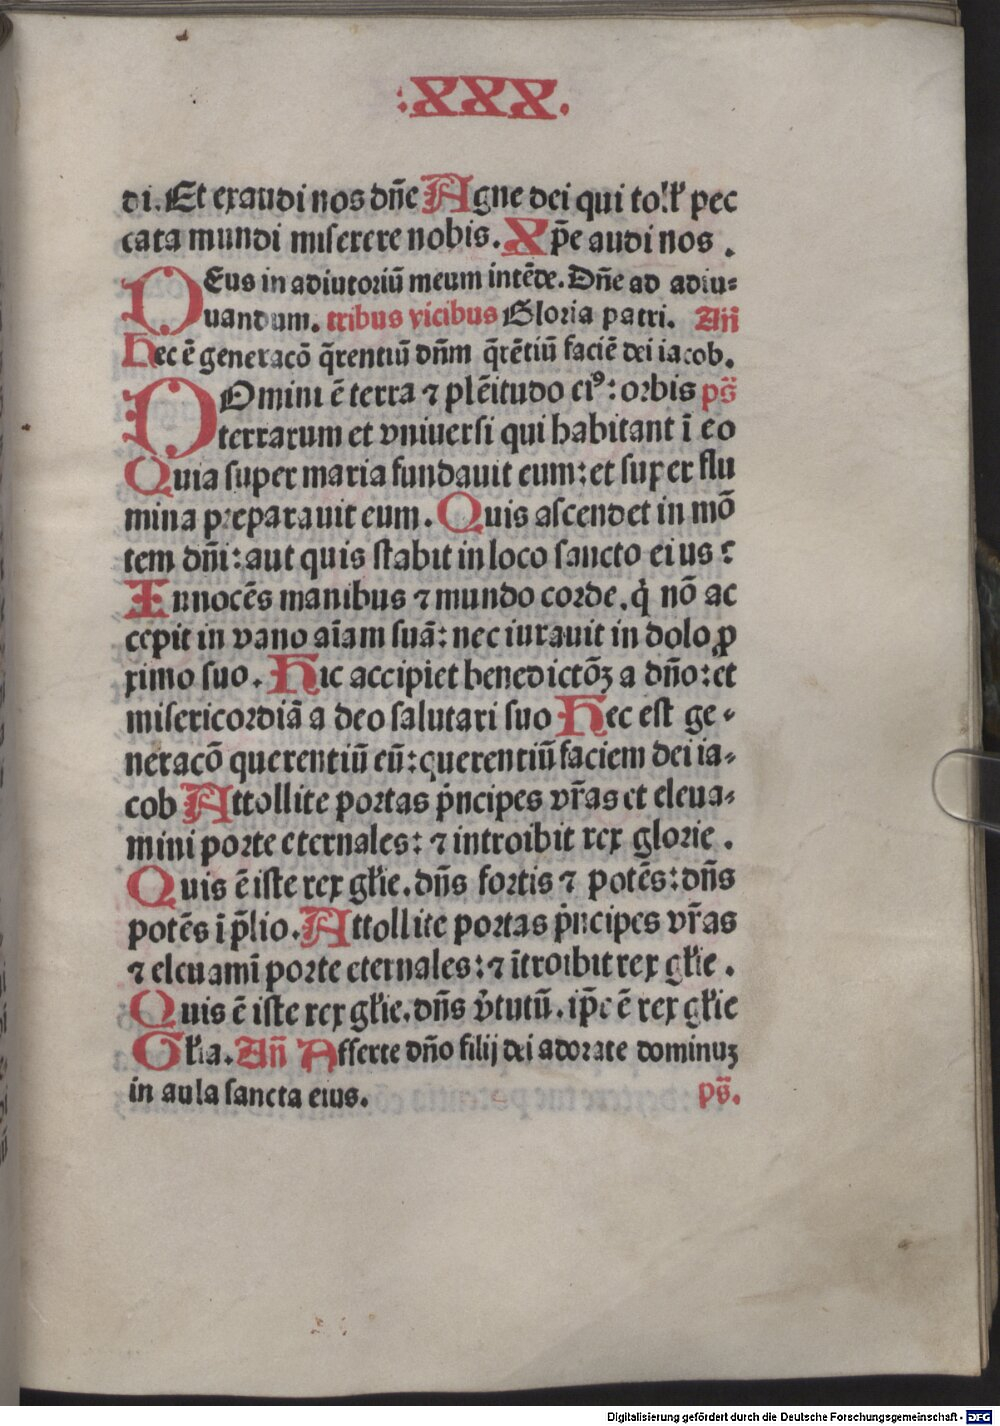 :XXX.
di. Et exaudi nos dn̄e Agne dei qui toll' pec
cata mundi miserere nobis. Xp̄e audi nos .
DEus in adiutoriū meum intēde. Dn̄e ad adiu-
uandum. tribus vicibus Gloria patri. An̄
Hec ē generacō q̄rentiū dn̄m q̄rētiū faciē dei iacob.
DOmini ē terra ⁊ plēitudo eiꝰ: orbis ps̄
terrarum et vniuersi qui habitant ī eo
Quia super maria fundauit eum: et super flu
mina preparauit eum. Quis ascendet in mō
tem dn̄i: aut quis stabit in loco sancto eius ?
Innocēs manibus ⁊ mundo corde. q̇ nō ac
cepit in vano aīam suā: nec iurauit in dolo ꝓ
ximo suo. Hic accipiet benedictōꝫ a dn̄o: et
misericordiā a deo salutari suo Hec est ge-
neracō querentiū eū: querentiū faciem dei ia-
cob Attollite portas p̍ncipes vr̄as et eleua-
mini porte eternales: ⁊ introibit rex glorie .
Quis ē iste rex gl'ie. dn̄s fortis ⁊ potēs: dn̄s
potēs ī p̄lio. Attollite portas p̍ncipes vr̄as
⁊ eleuamī porte eternales: ⁊ ītroibit rex gl'ie .
Quis ē iste rex gl'ie. dn̄s v̍tutū. ip̄e ē rex gl'ie
Gl'ia. An̄ Afferte dn̄o filij dei adorate dominuꝫ
in aula sancta eius. ps̄.
Digitalisierung gefördert durch die Deutsche Forschungsgemeinschaft - DFG